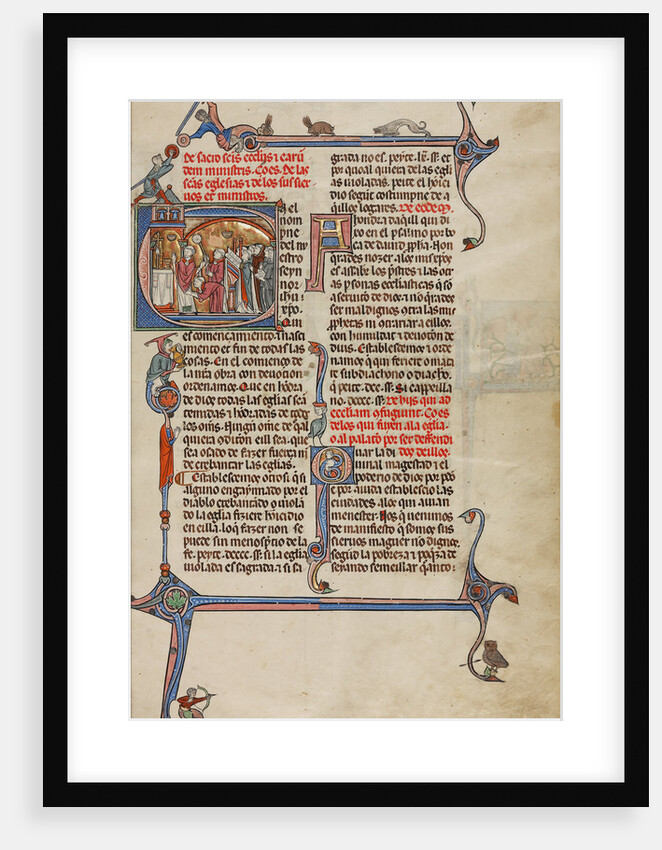 De sacro scis ecclijs ⁊ earū
dem ministris. Coes. De las
scās eglesias ⁊ de los sus sier
uos et ministros.
el
nom
pne
del n̄r
estro
seyn
nor
ihū
xp̄o.
Qui
es comencamiento ⁊ nasci
miento et fin de todas las
cosas. En el comienço de
la n̄ra obra con deuotion
ordenamos. Que en hōor
de dios todas las eglias seā
temidas ⁊ hōradas de todos
los om̄s. Ningū om̄e de qal
quiera ꝯditiōn eill sea. que
sea osado de fazer fuerça nī
de crebantar las eglias.
Establescemos otrosi. q̄ si
alguno engaynnado por el
diablo crebantado ꝯ uiola
do la eglia fiziere homicidio
en eilla. lo q̄ fazer non se
puede sin menosprio de la
fe. peyte. dcccc. sś. si la eglia
uiolada es sagrada ⁊ si sa
grada no es. peyte. ss. et
por qual quiera de las eglias
uioladas. peite el homici
dio segūt costumpne de a
qillos logares. De eodem.
Ahondra daqill qui di
xo en el psalmo por bo
ca de dauid ppha. Non
qrades nozer a los mis xpos
es assaber los prestes ⁊ las otras
psonas ecclesiasticas q̄ sō
a seruicio de dios. ⁊ no qrades
ser malignos ꝯtra las mis
pphetas ni ꝯtrariar a eillos.
con humildat ⁊ deuotiōn de
diuis. Establescemos ⁊ orde
namos q̄ qui firiere o mata
re subdiachono o diachō.
q̄ peite. dcc. sś. Si cappeilla
no. dcccc. sś. De hijs qui ad
ecclīam ꝯfugiunt. Coes
de los qui fuyen a la eglia
o al palatio por ser defendi
dos deillos.
Cuar la di
uinal magestad ⁊ el
poderio de dios por po
r ayuda establescio las
ciudades a los qui auian
menester. Nos q̄ uenimos
de manifiesto q̄ somos sus
sieruos maguer no dignos.
segūd la pobreza ⁊ pqza de
seyando semeillar quanto